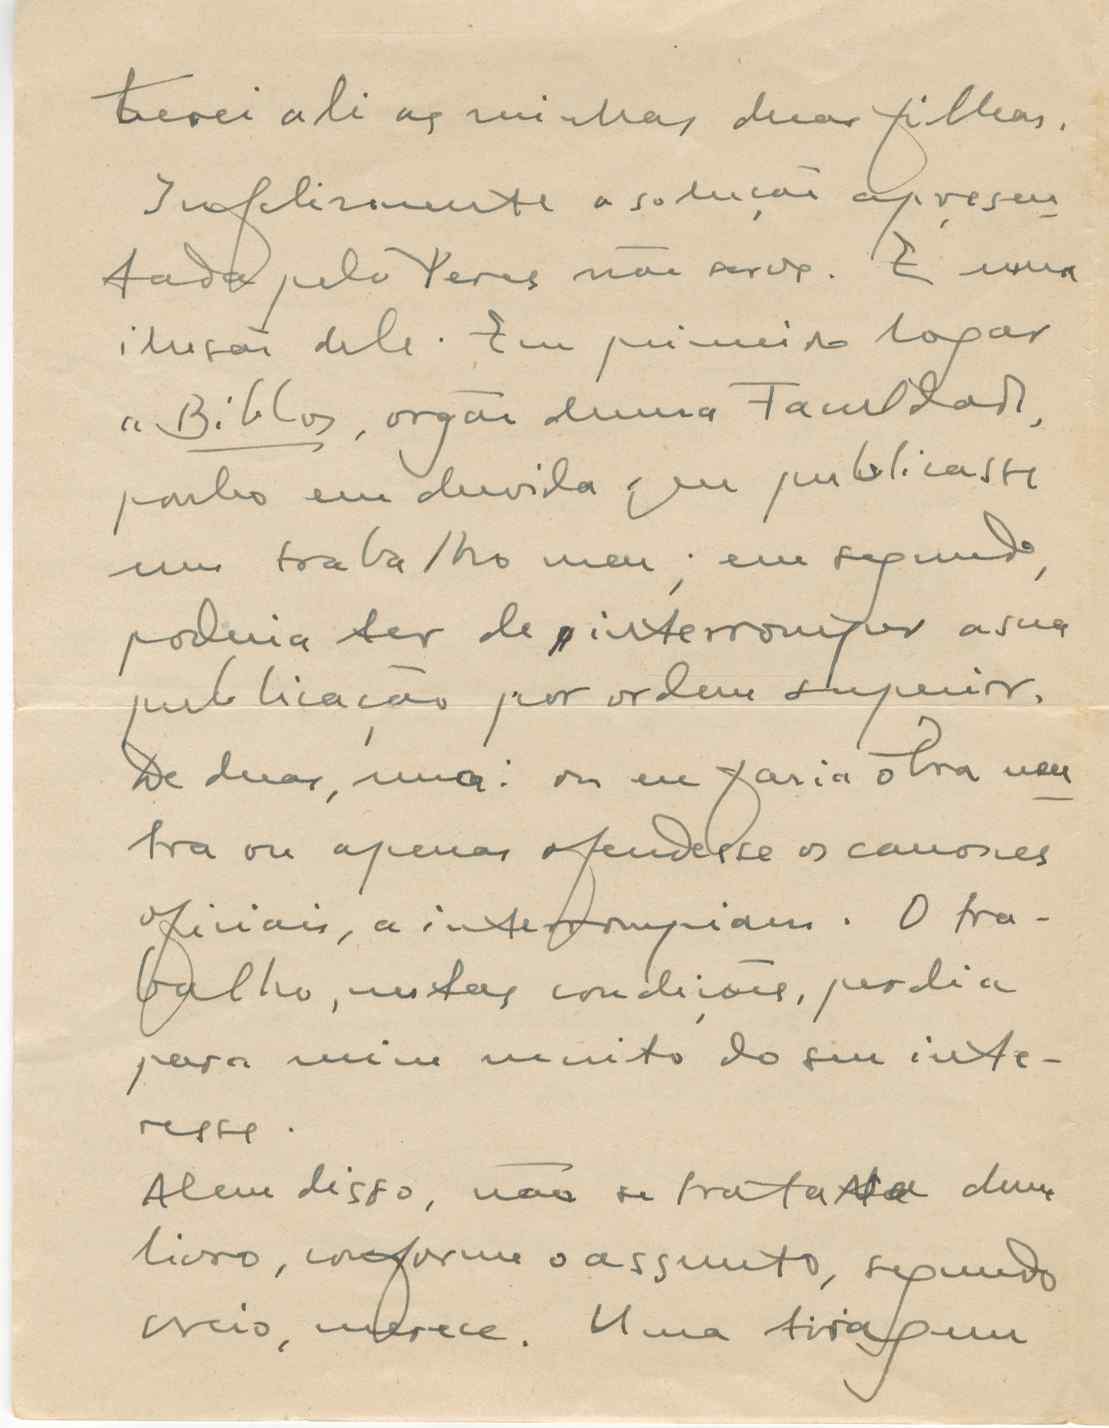 terei ali as minhas duas filhas.
Infelizmente a solução apresen
tada pelo Peres não serve. É uma
ilusão dele. Em primeiro logar
a Biblos, orgão duma Faculdade,
ponho em duvida que publicasse
um trabalho meu; em segundo,
poderia ter de interromper a sua
publicação por ordem superior.
De duas, uma: ou eu faria óbra neu
tra ou apenas ofendesse os canones
oficiais, a interrompiam. O tra-
balho, nestas condições, perdia
para mim muito do seu inte-
resse.
Alem disso, não se trata dum
livro, conforme o assunto, segundo
creio, merece. Uma tiragem